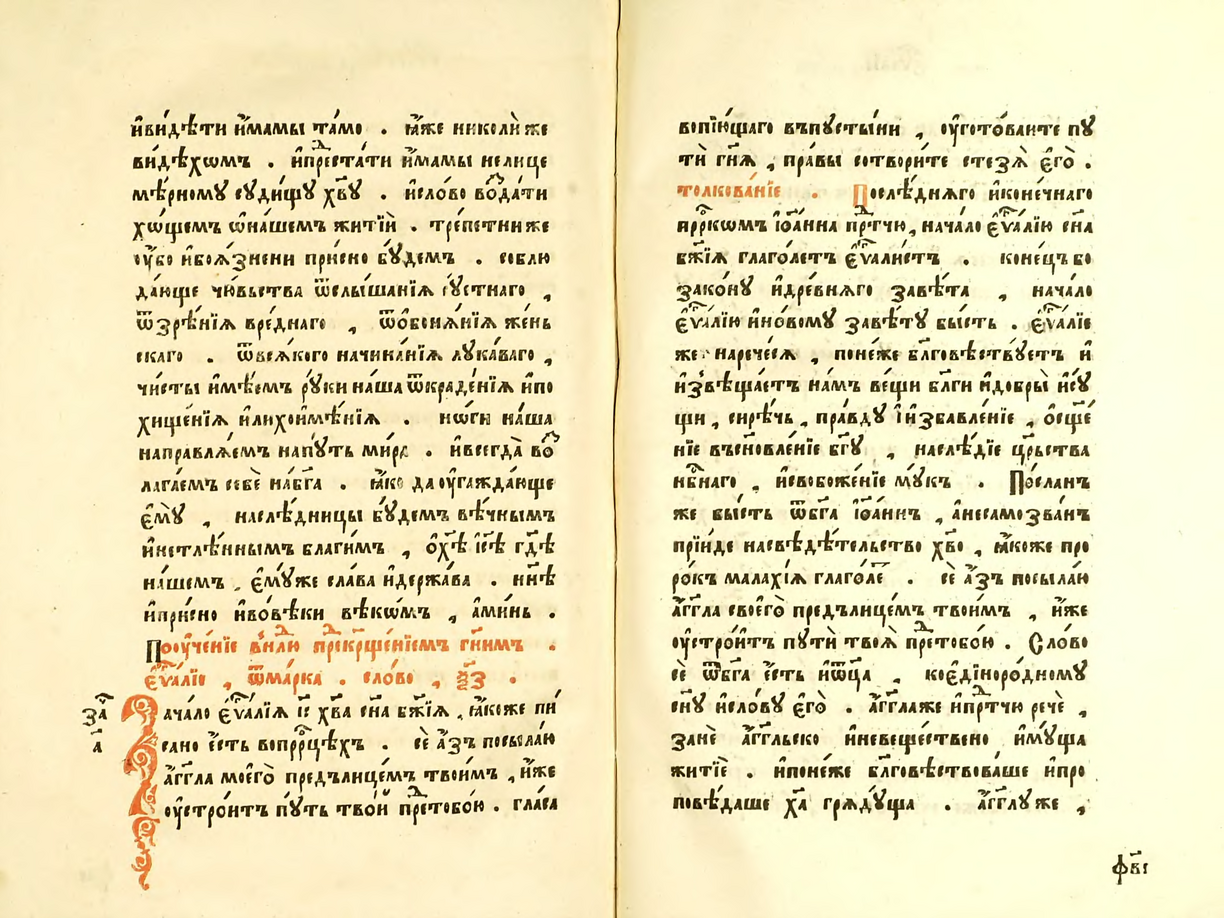 и҆ви́дѣти и҆́мамы та́мо . ꙗ҆́же николѝ же
ви́дѣхомъ . и҆предста́ти и҆́мамы нелице
мѣ́рномꙋ сꙋди́щꙋ хв҃ꙋ . и҆сло́во возда́ти
хѡ́щемъ ѡ҆на́шемъ житїѝ . тре́петни же
ᲂу҆́бо и҆боѧ́знени при́сно бꙋ́демъ . соблю
да́юще чю́вьства ѿслы́шанїѧ гꙋ́стнаго ,
ѿзрѣ́нїѧ вре́днаго , ѿѡбонѧ́нїѧ же́нь
скаго . ѿвсѧ́кого начина́нїѧ лꙋка́ваго ,
чи́сты и҆мѣ́емъ рꙋ́ки на́ша ѿкраде́нїѧ и҆по
хище́нїѧ и҆лихои҆мѣ́нїѧ . но́ги на́ша
направлѧ́емъ напꙋ́ть ми́ра . и҆всегда̀ воз
лага́емъ себѐ на́бг҃а . ꙗ҆́кѡ да ᲂу҆гажда́юще
є҆мꙋ̀ , наслѣ́дницы бꙋ́демъ вѣ́чнымъ
и҆нетлѣ́ннымъ благи́мъ , ѻ҆хрⷭ҇тѣ̀ і҆и҃сѣ гдⷭ҇ѣ
на́шемъ , є҆мꙋ́же сла́ва и҆держа́ва . нн҃ѣ
и҆при́сно и҆вовѣ́ки вѣкѡ́мъ , а҆ми́нь .
Поᲂуче́нїе внⷣлю предкрⷭ҇ще́нїемъ гдⷭ҇нимъ .
є҆ѵⷢ҇а́лїе , ѿма́рка . сло́во , ѯ҃з .
за҃ а҃
Зача́ло є҆ѵⷢ҇а́лїѧ і҆и҃с хв҃а сн҃а бж҃їѧ , ꙗ҆́коже пи́
сано є҆́сть вопррⷪ҇цѣхъ . сѐ а҆́зъ посыла́ю
а҆́гг҃ла моего̀ предълице́мъ твои́мъ , и҆́же
ᲂу҆стро́итъ пꙋ́ть тво́й предтобо́ю . гла́са
вопїю́щаго въпꙋсты́ни , ᲂу҆гото́ваите пꙋ
тѝ гдⷭ҇нѧ , пра́вы сотвори́те стезѧ̀ є҆го̀ .
толкова́нїе . Послѣ́днѧго и҆коне́чнаго
прⷪ҇ркѡмъ і҆ѡа́нна прⷣтчю , нача́ло є҆ѵⷢ҇а́лїю сн҃а
бж҃їѧ глаго́летъ є҆ѵⷢ҇али́стъ . коне́цъ бо
зако́нꙋ и҆дре́внѧго заве́та , нача́ло
є҆ѵⷢ҇а́лїю и҆но́вомꙋ завѣ́тꙋ бы́сть . є҆ѵⷢ҇а́лїе
же нарече́сѧ , поне́же бл҃говѣ́ствꙋетъ и҆
и҆звѣща́етъ на́мъ ве́щи бл҃ги и҆добры̀ и҆сꙋ
щи , си́рѣчь , пра́вдꙋ и҆избавле́нїе , ѡ҆сщ҃е́
нїе въсн҃овле́нїе бг҃ꙋ , наслѣ́дїе црⷭ҇ьства
нбⷭ҇наго , и҆свобоже́нїе мꙋ́къ . По́слан
же бы́сть ѿбг҃а і҆ѡа́ннъ , а҆несамозва́нъ
прїи́де насвѣдѣ́тельство хв҃о , ꙗ҆́коже про
ро́къ мала́хїѧ глаго́ле . сѐ а҆́зъ посыла́ю
а҆́гг҃ла своего̀ предълице́мъ твои́мъ , и҆́же
ᲂу҆стро́итъ пꙋтѝ твоѧ̀ предтобо́ю . Сло́во
сѐ ѿбг҃а є҆́сть и҆ѿц҃а , коє҆диноро́дномꙋ
сн҃ꙋ и҆сло́вꙋ є҆го̀ . а҆́гг҃лаже и҆прⷣтчю речѐ ,
занѐ а҆́гг҃льско и҆невеще́ствено и҆мꙋ́ща
житїѐ . и҆поне́же бл҃говѣ́ствоваше и҆про
повѣ́даше хрⷭ҇та̀ грѧдꙋ́ща . а҆́гг҃лꙋ же ,